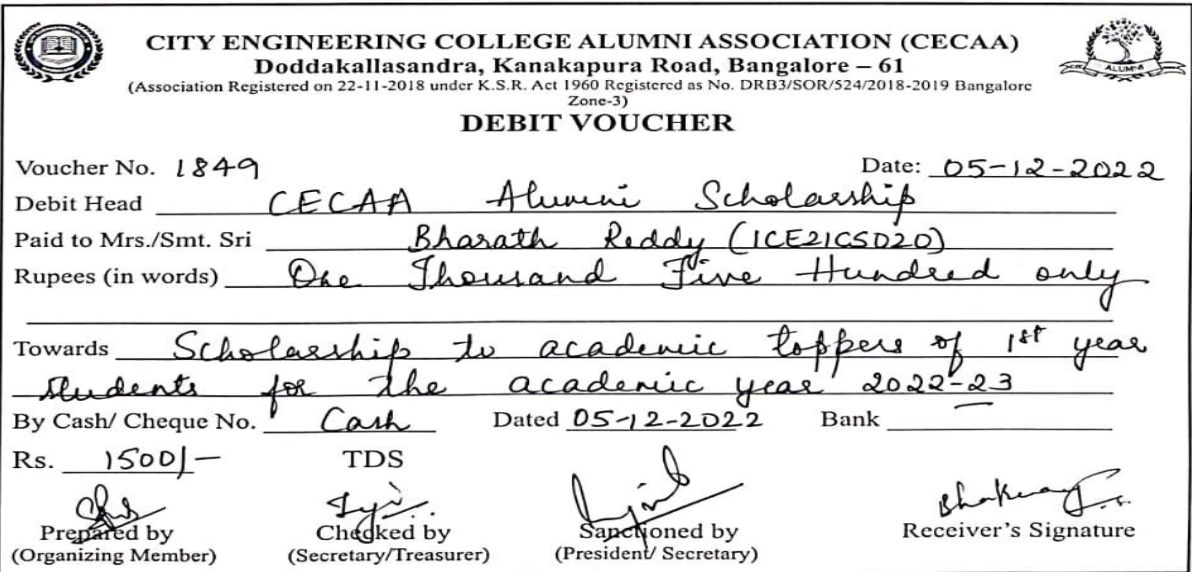 CITY ENGINEERING COLLEGE ALUMNI ASSOCIATION (CECAA)
Doddakallasandra, Kanakapura Road, Bangalore – 61
(Association Registered on 22-11-2018 under K.S.R. Act 1960 Registered as No. DRB3/SOR/524/2018-2019 Bangalore
Zone-3)
ALUMNI
DEBIT VOUCHER
Voucher No. 1849 Date: 05-12-2022
Debit Head CECAA Alumni Scholarship
Paid to Mrs./Smt. Sri Bharath Reddy (1CE21CSD20)
Rupees (in words) One Thousand Five Hundred only
Towards Scholarship to academic toppers of 1st year
students for the academic year 2022-23
By Cash/ Cheque No. Cash Dated 05-12-2022 Bank —
Rs. 1500/- TDS
Prepared by Checked by Sanctioned by Receiver's Signature
(Organizing Member) (Secretary/Treasurer) (President/ Secretary)